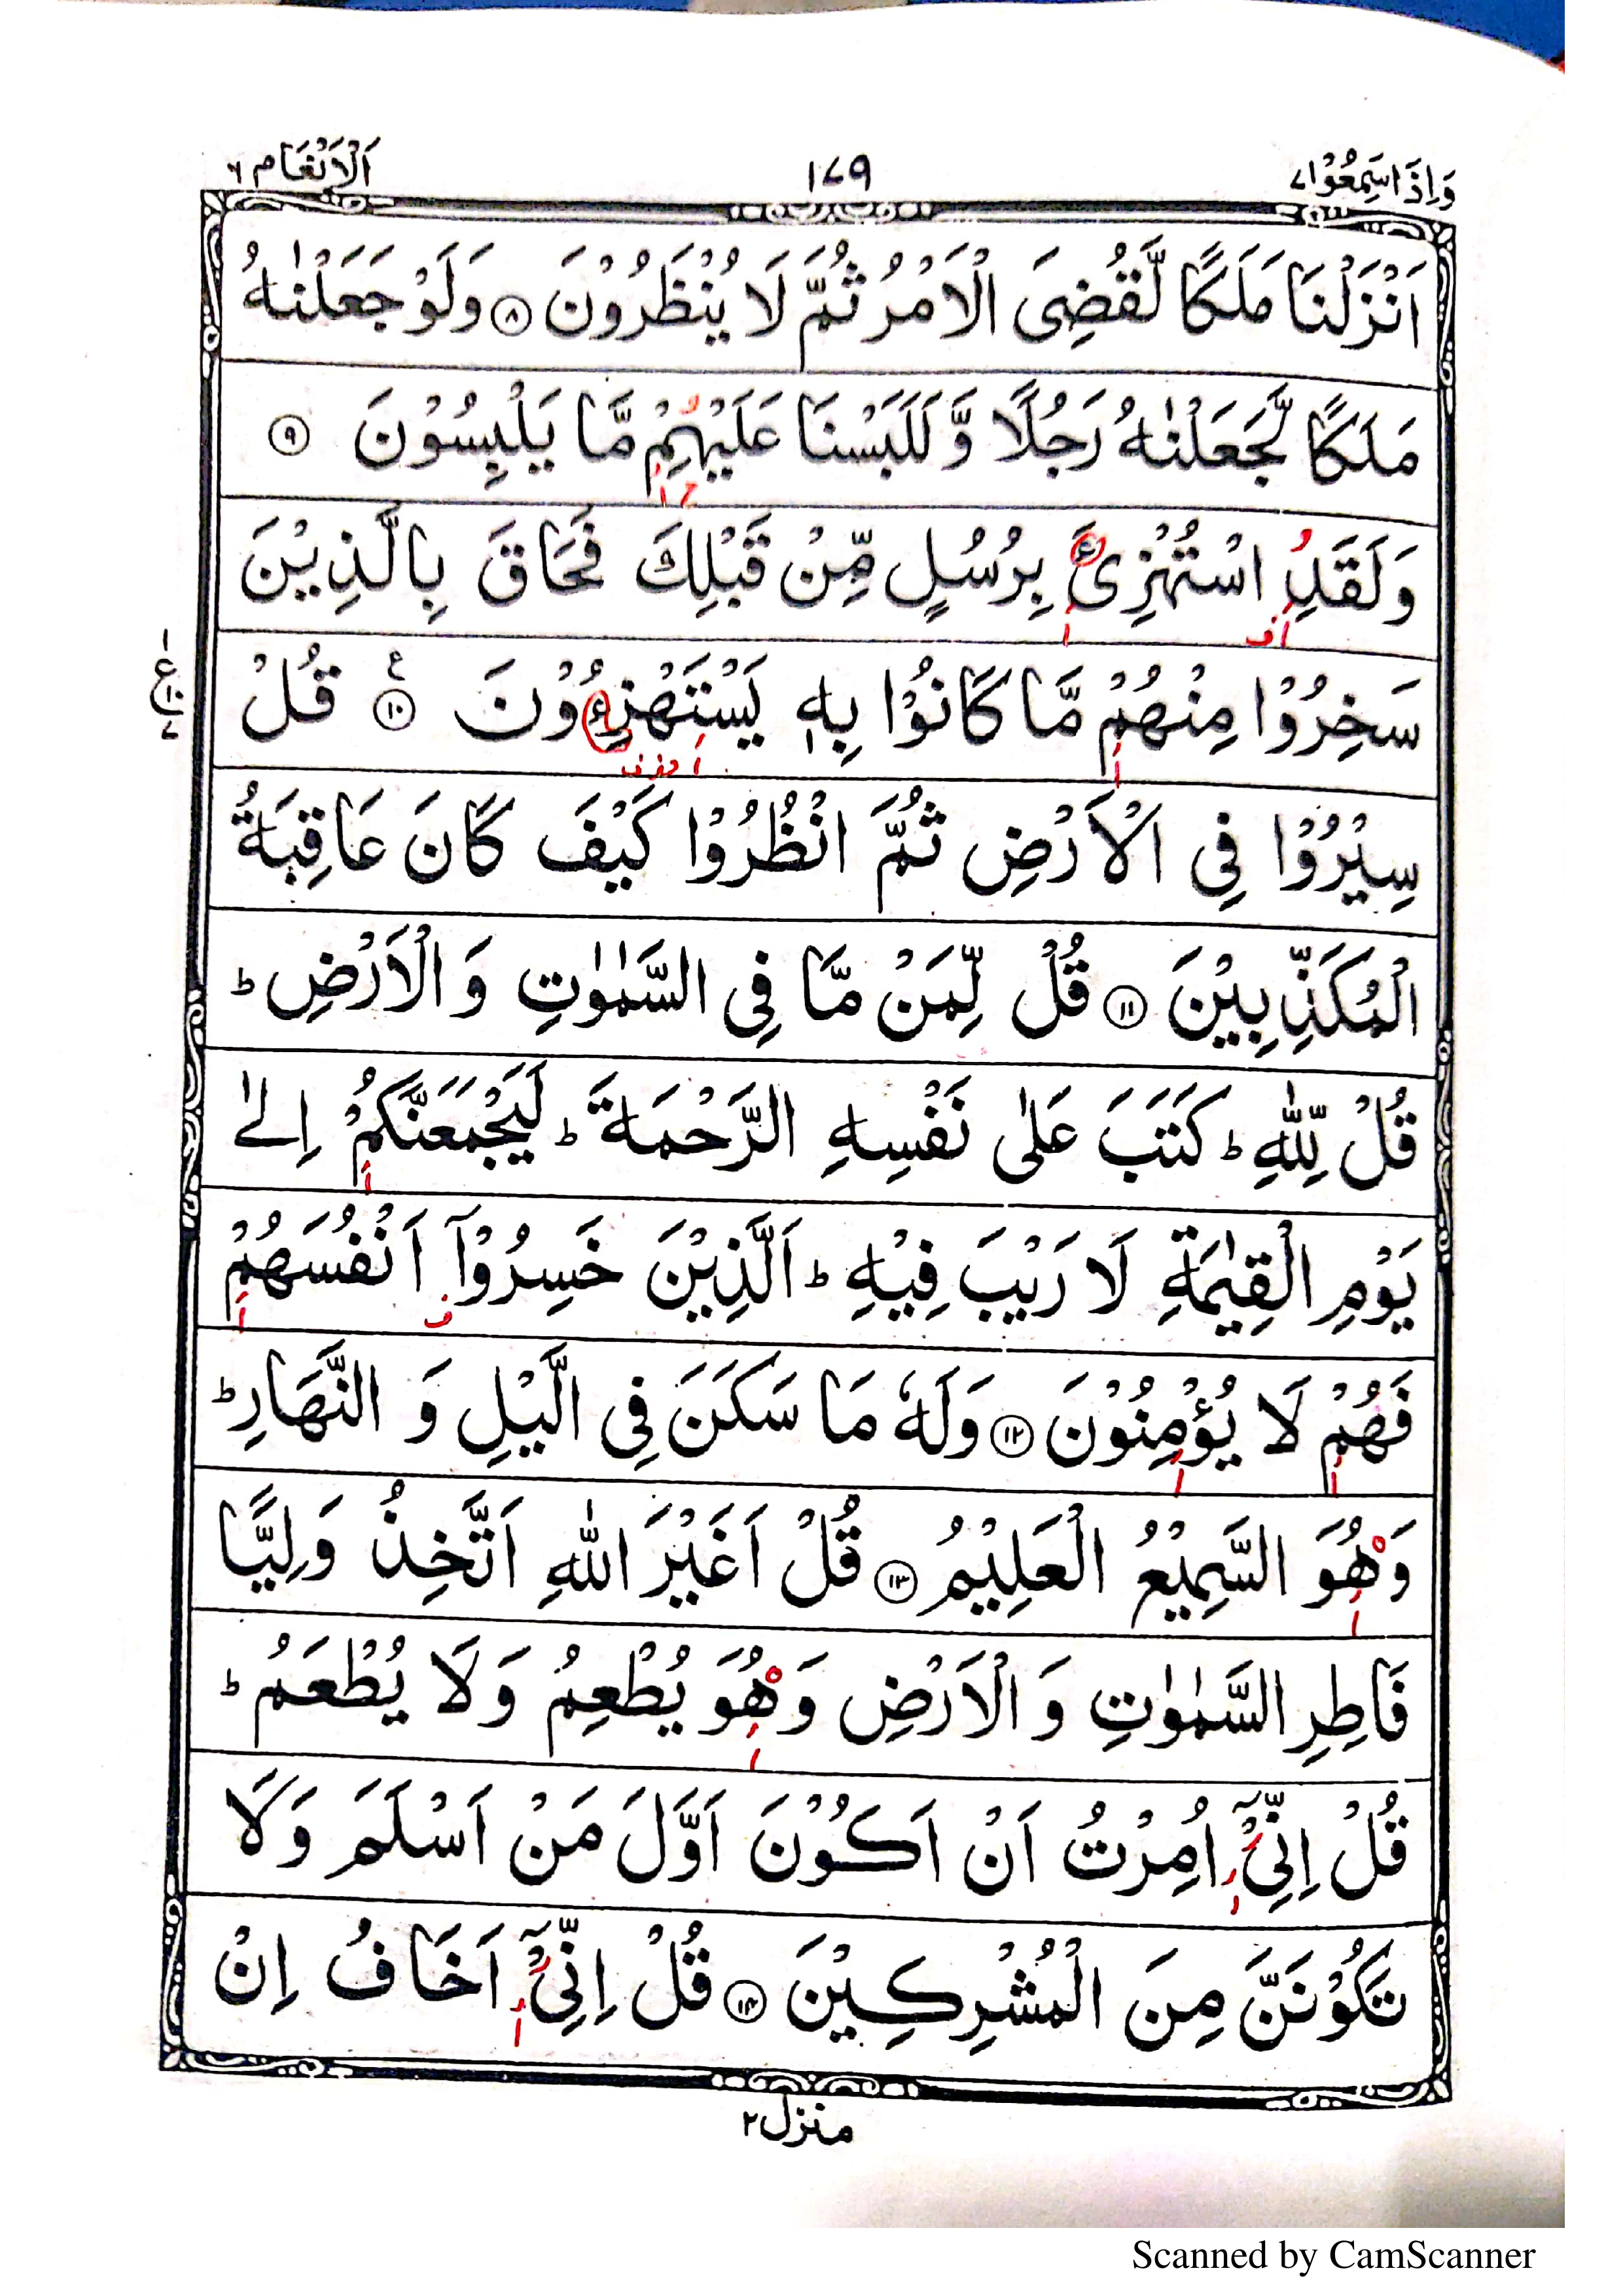 وَاِذَا سَمِعُوْا ٧
١٧٩
اَلْاَنْعَام ٦
اَنْزَلْنَا مَلَكًا لَّقُضِىَ الْاَمْرُ ثُمَّ لَا يُنْظَرُوْنَ ﴿٨﴾ وَلَوْ جَعَلْنٰهُ
مَلَكًا لَّجَعَلْنٰهُ رَجُلًا وَّ لَلَبَسْنَا عَلَيْهِمْ مَّا يَلْبِسُوْنَ ﴿٩﴾
وَلَقَدِ اسْتُهْزِئَ بِرُسُلٍ مِّنْ قَبْلِكَ فَحَاقَ بِالَّذِيْنَ
سَخِرُوْا مِنْهُمْ مَّا كَانُوْا بِهٖ يَسْتَهْزِءُوْنَ ﴿١٠﴾ ع قُلْ
سِيْرُوْا فِى الْاَرْضِ ثُمَّ انْظُرُوْا كَيْفَ كَانَ عَاقِبَةُ
الْمُكَذِّبِيْنَ ﴿١١﴾ قُلْ لِّمَنْ مَّا فِى السَّمٰوٰتِ وَ الْاَرْضِ ؕ
قُلْ لِّلّٰهِ ؕ كَتَبَ عَلٰى نَفْسِهِ الرَّحْمَةَ ؕ لَيَجْمَعَنَّكُمْ اِلٰى
يَوْمِ الْقِيٰمَةِ لَا رَيْبَ فِيْهِ ؕ اَلَّذِيْنَ خَسِرُوْۤا اَنْفُسَهُمْ
فَهُمْ لَا يُؤْمِنُوْنَ ﴿١٢﴾ وَلَهٗ مَا سَكَنَ فِى الَّيْلِ وَ النَّهَارِ ؕ
وَهُوَ السَّمِيْعُ الْعَلِيْمُ ﴿١٣﴾ قُلْ اَغَيْرَ اللّٰهِ اَتَّخِذُ وَلِيًّا
فَاطِرِ السَّمٰوٰتِ وَ الْاَرْضِ وَهُوَ يُطْعِمُ وَلَا يُطْعَمُ ؕ
قُلْ اِنِّىْۤ اُمِرْتُ اَنْ اَكُوْنَ اَوَّلَ مَنْ اَسْلَمَ وَلَا
تَكُوْنَنَّ مِنَ الْمُشْرِكِيْنَ ﴿١٤﴾ قُلْ اِنِّىْۤ اَخَافُ اِنْ
منزل ٢
Scanned by CamScanner